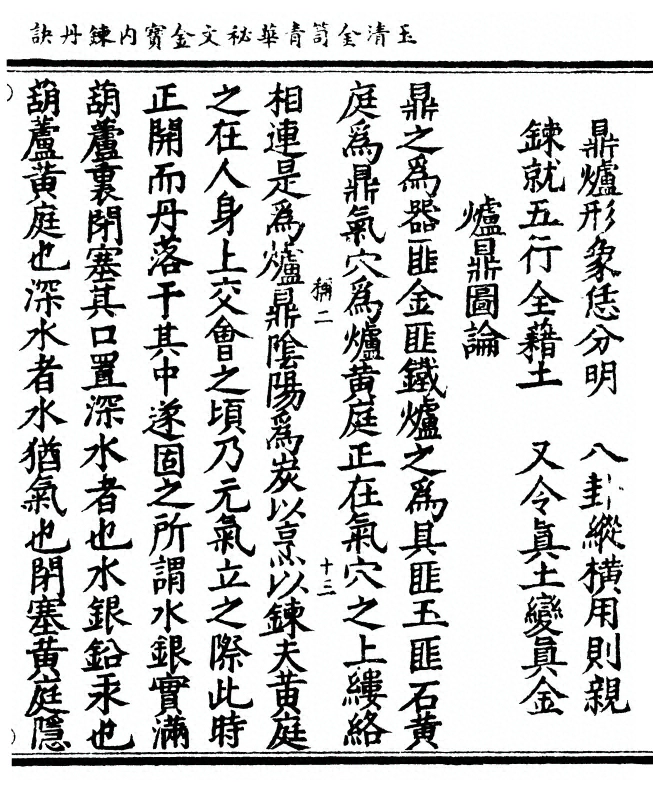 玉清金笥青華秘文金寶內鍊丹訣
鼎爐形象恁分明　八卦縱橫用則親
鍊就五行全藉土　又令眞土變眞金
爐鼎圖論
鼎之爲器匪金匪鐵爐之爲具匪玉匪石黄
庭爲鼎氣穴爲爐黄庭正在氣穴之上縷絡
相連是爲爐鼎陰陽爲炭以烹以鍊夫黄庭
稱二
十三
之在人身上交會之頃乃元氣立之際此時
正開而丹落于其中遂固之所謂水銀實滿
葫蘆裏閉塞其口置深水者也水銀鉛汞也
葫蘆黄庭也深水者水猶氣也閉塞黄庭隱